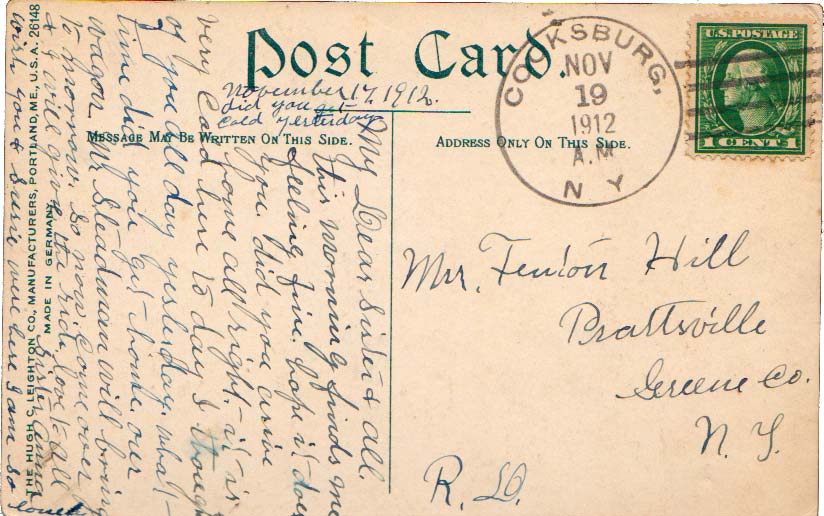 Post Card.
November 17, 1912.
did you get
cold yesterday
MESSAGE MAY BE WRITTEN ON THIS SIDE.
ADDRESS ONLY ON THIS SIDE.
COOKSBURG,
NOV
19
1912
A.M.
N Y
U.S. POSTAGE
1 CENT 1
My Dear Sister & all.
this morning finds me
feeling fine. hope it does
you. did you arive
home all right. it is
very Cold here to day. I though
of you all day yesterday. what
time did you get home. our
wagon Mr. Steadman will bring
to morrow. so now Come over
& I will give the ride. love to all
Sister Anna
wish you & Susie were here I am so lonely
Mrs. Fenton Hill
Prattsville
Greene Co.
N. Y.
R. D.
THE HUGH C. LEIGHTON CO., MANUFACTURERS, PORTLAND, ME., U.S.A. 26148
MADE IN GERMANY